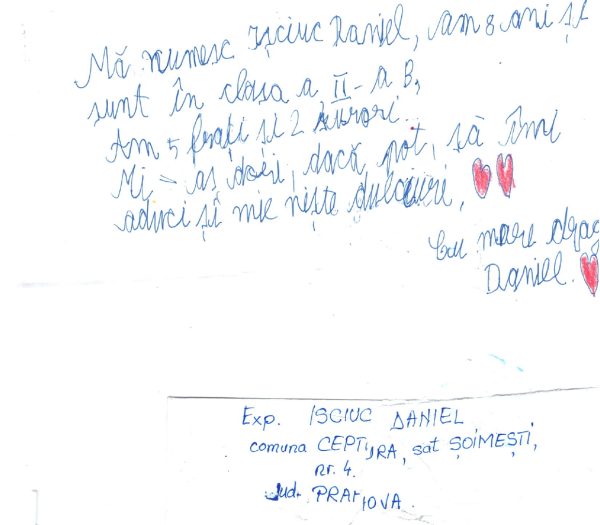 Mă numesc Işciuc Daniel, am 8 ani și
sunt în clasa a II-a B,
Am 5 frați și 2 surori.
Mi-aș dori, dacă pot, să îmi
aduci și mie niște dulciuri,
Cu mare drag
Daniel.
Exp. ISCIUC DANIEL
comuna CEPTURA, sat ȘOIMEȘTI,
nr. 4.
Jud. PRAHOVA.